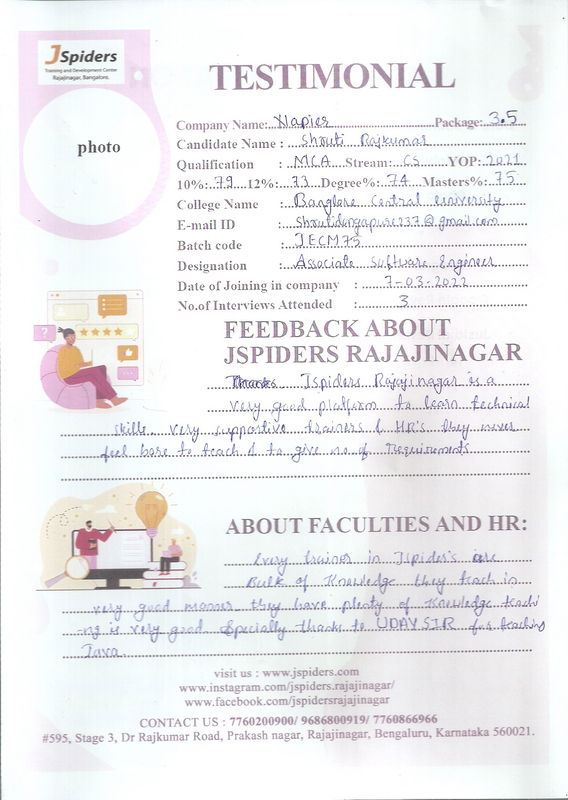 JSpiders
Training and Development Center
Rajajinagar, Bangalore.
TESTIMONIAL
photo
Company Name: Napier Package: 3.5
Candidate Name : Shruti Rajkumar
Qualification : MCA Stream: CS YOP: 2021
10%: 79 12%: 73 Degree%: 74 Masters%: 75
College Name : Banglore Central University
E-mail ID :
Batch code : JECM75
Designation : Associate Software Engineer
Date of Joining in company : 7-03-2022
No.of Interviews Attended : 3
FEEDBACK ABOUT
JSPIDERS RAJAJINAGAR
Jspiders Rajajinagar is a
very good platform to learn technical
skills very supportive trainers & HR's they never
feel bore to teach & to give no of Requirements
ABOUT FACULTIES AND HR:
Every trainer in Jspider's are
Bulk of Knowledge they teach in
very good manner they have plenty of Knowledge teachi
ng is very good Specially thanks to UDAY SIR for teaching
Java
visit us : www.jspiders.com
www.instagram.com/jspiders.rajajinagar/
www.facebook.com/jspidersrajajinagar
CONTACT US : 7760200900/ 9686800919/ 7760866966
#595, Stage 3, Dr Rajkumar Road, Prakash nagar, Rajajinagar, Bengaluru, Karnataka 560021.